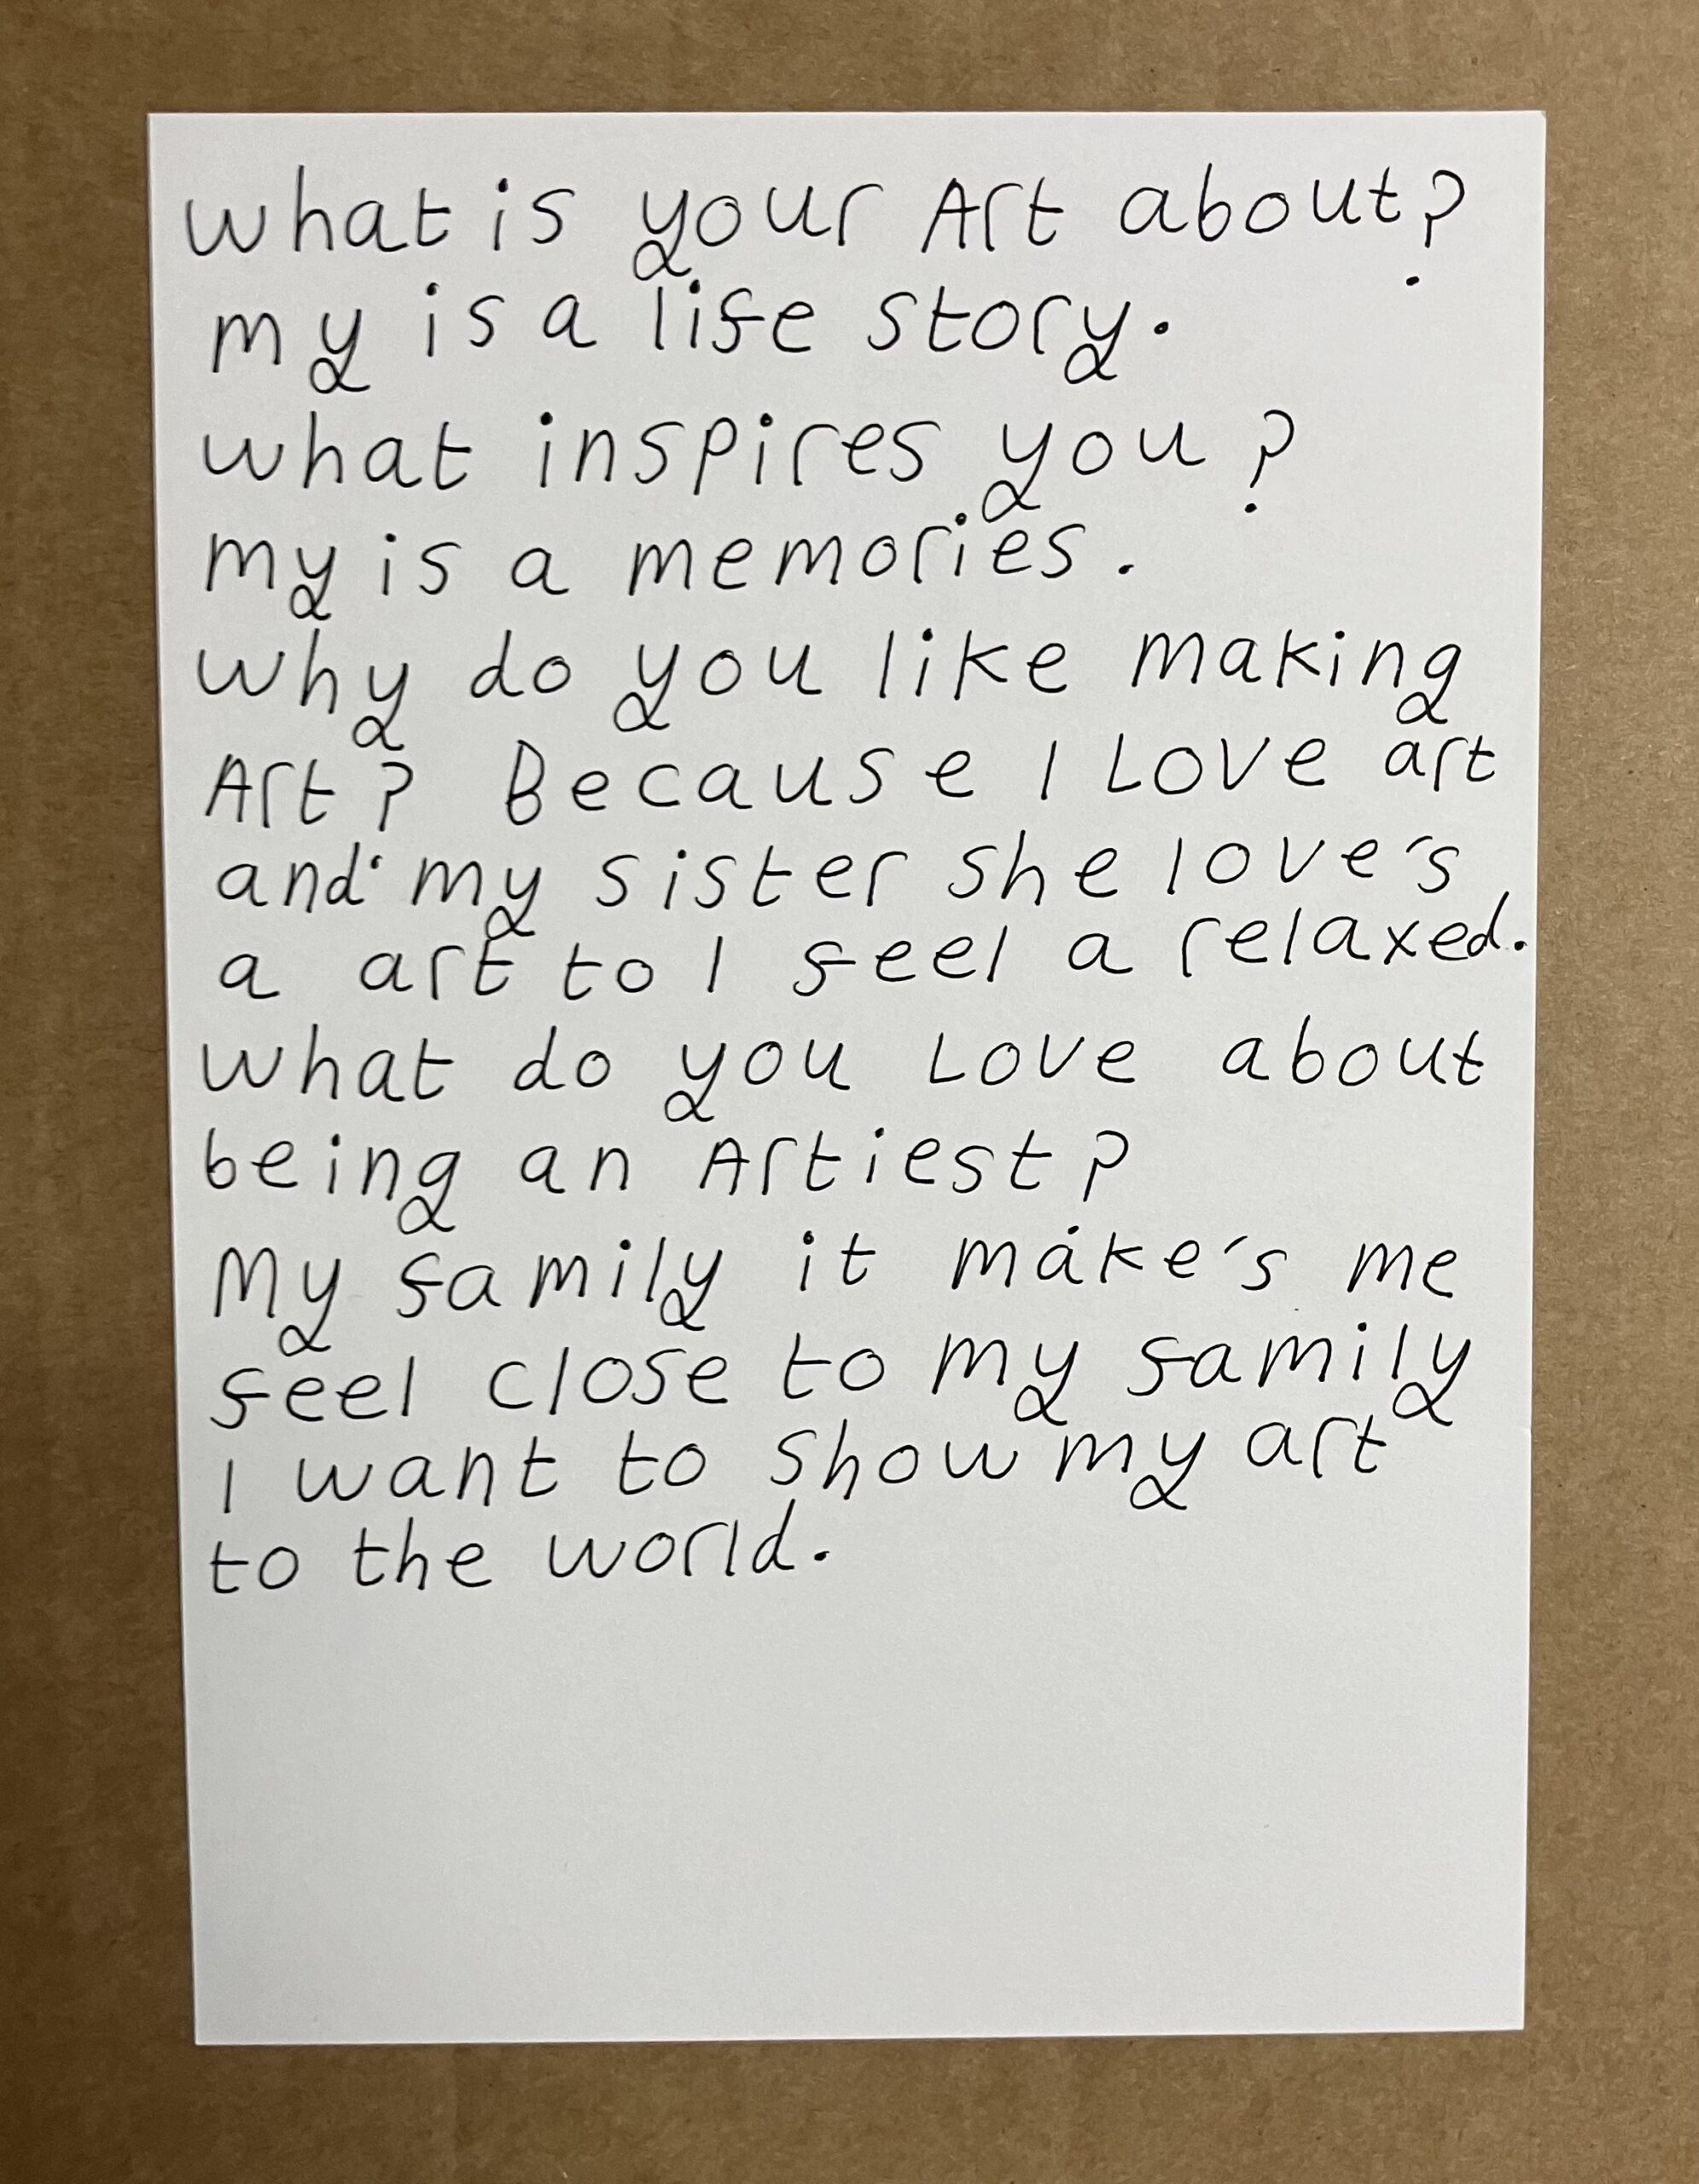 what is your Art about?
my is a life story.
what inspires you?
my is a memories.
why do you like making
Art? Because I Love art
and my sister she love's
a art to I feel a relaxed.
what do you Love about
being an Artiest?
My family it make's me
feel close to my family
I want to show my art
to the world.